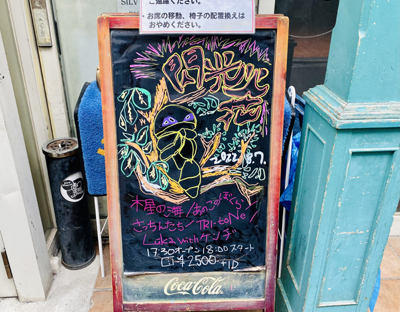 SILV
ご遠慮ください。
・お席の移動、椅子の配置換えは
おやめください。
2022.8.7.
木星の海/あのこのぼくら/
さっちんたち/TRI-toNe/
Luka withケンヂ
17:30オープン 18:00スタート
¥2500 +1D
Coca-Cola